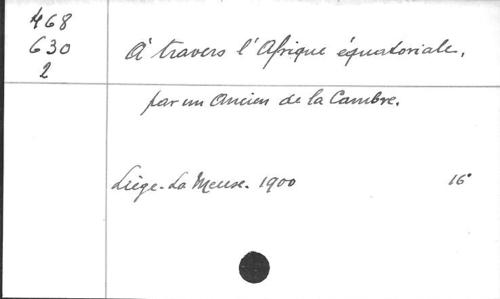 468
630
2
À travers l'Afrique équatoriale,
par un Ancien de la Cambre.
Liège - La Meuse. 1900 16°